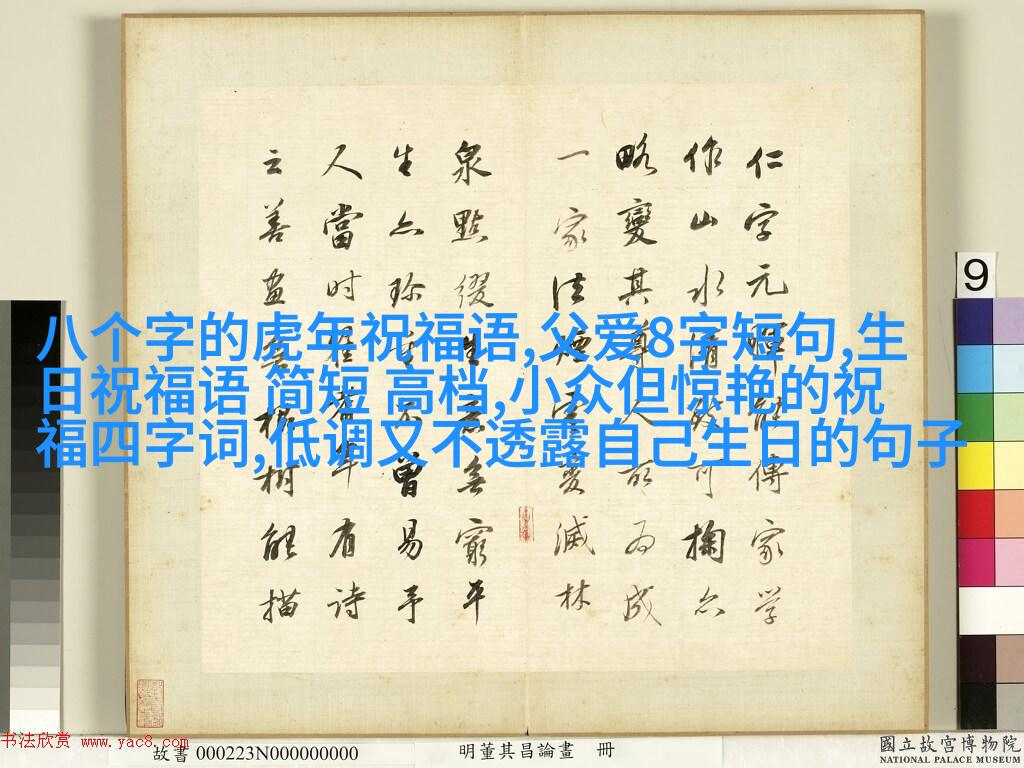 八个字的虎年祝福语,父爱8字短句,生
日祝福语 简短 高档,小众但惊艳的祝
福四字词,低调又不透露自己生日的句子
仁字元暉能傳家学
作山水清致可掬亦
略變其尊人所为成
一家法煙雲變滅林
泉點綴生意無窮平
生亦珍重不曾易予
人當时翟耆年有詩
云善畫無根樹能描
9
书法欣赏 www.yac8.com
故書 000223N000000000
明董其昌論畫 冊
國立故宮博物院
NATIONAL PALACE MUSEUM